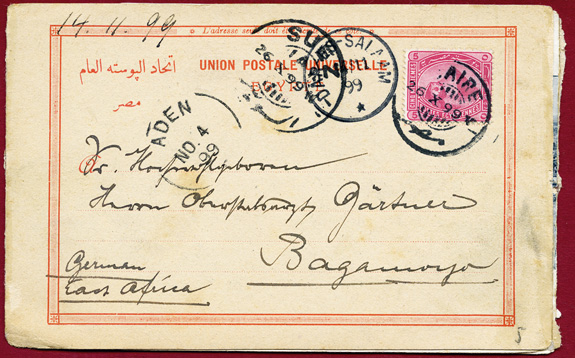 14.11.99
L'adresse
SUEZ
26 X 99
DAR-ES-SALAAM
11
99
CAIRE
26 X 99
اتحاد البوسته العام
UNION POSTALE UNIVERSELLE
مصر
ADEN
NO 4
99
Sr. Hochwohlgeboren
Herrn Oberstabsarzt Gärtner
Bagamoyo
German
East Africa
5